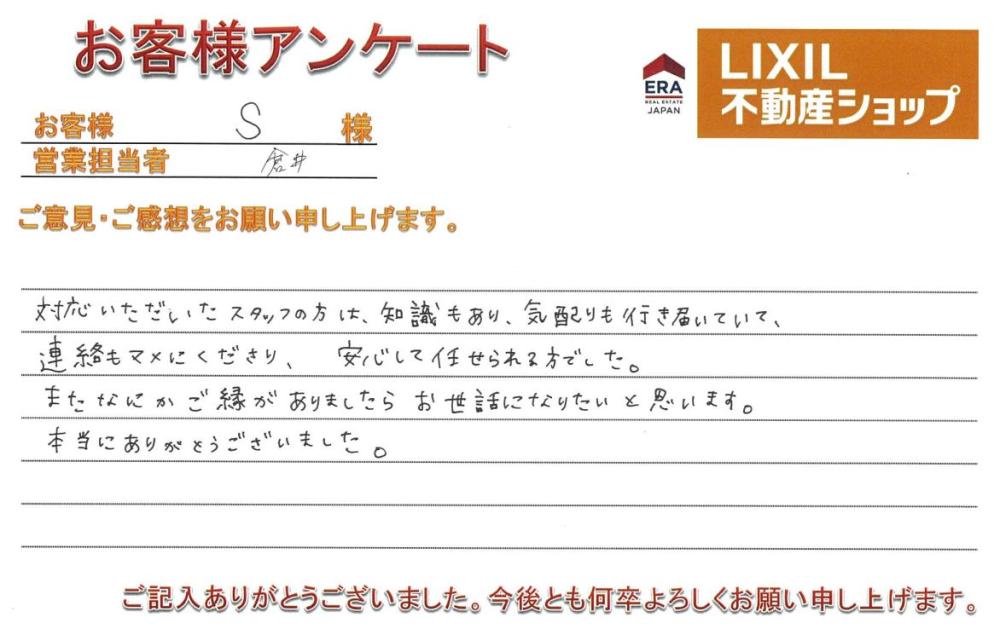 お客様アンケート
ERA
REAL ESTATE
JAPAN
LIXIL
不動産ショップ
お客様 S 様
営業担当者 倉井
ご意見・ご感想をお願い申し上げます。
対応いただいたスタッフの方は、知識もあり、気配りも行き届いていて、
連絡もマメにくださり、 安心して任せられる方でした。
またなにかご縁がありましたらお世話になりたいと思います。
本当にありがとうございました。
ご記入ありがとうございました。今後とも何卒よろしくお願い申し上げます。